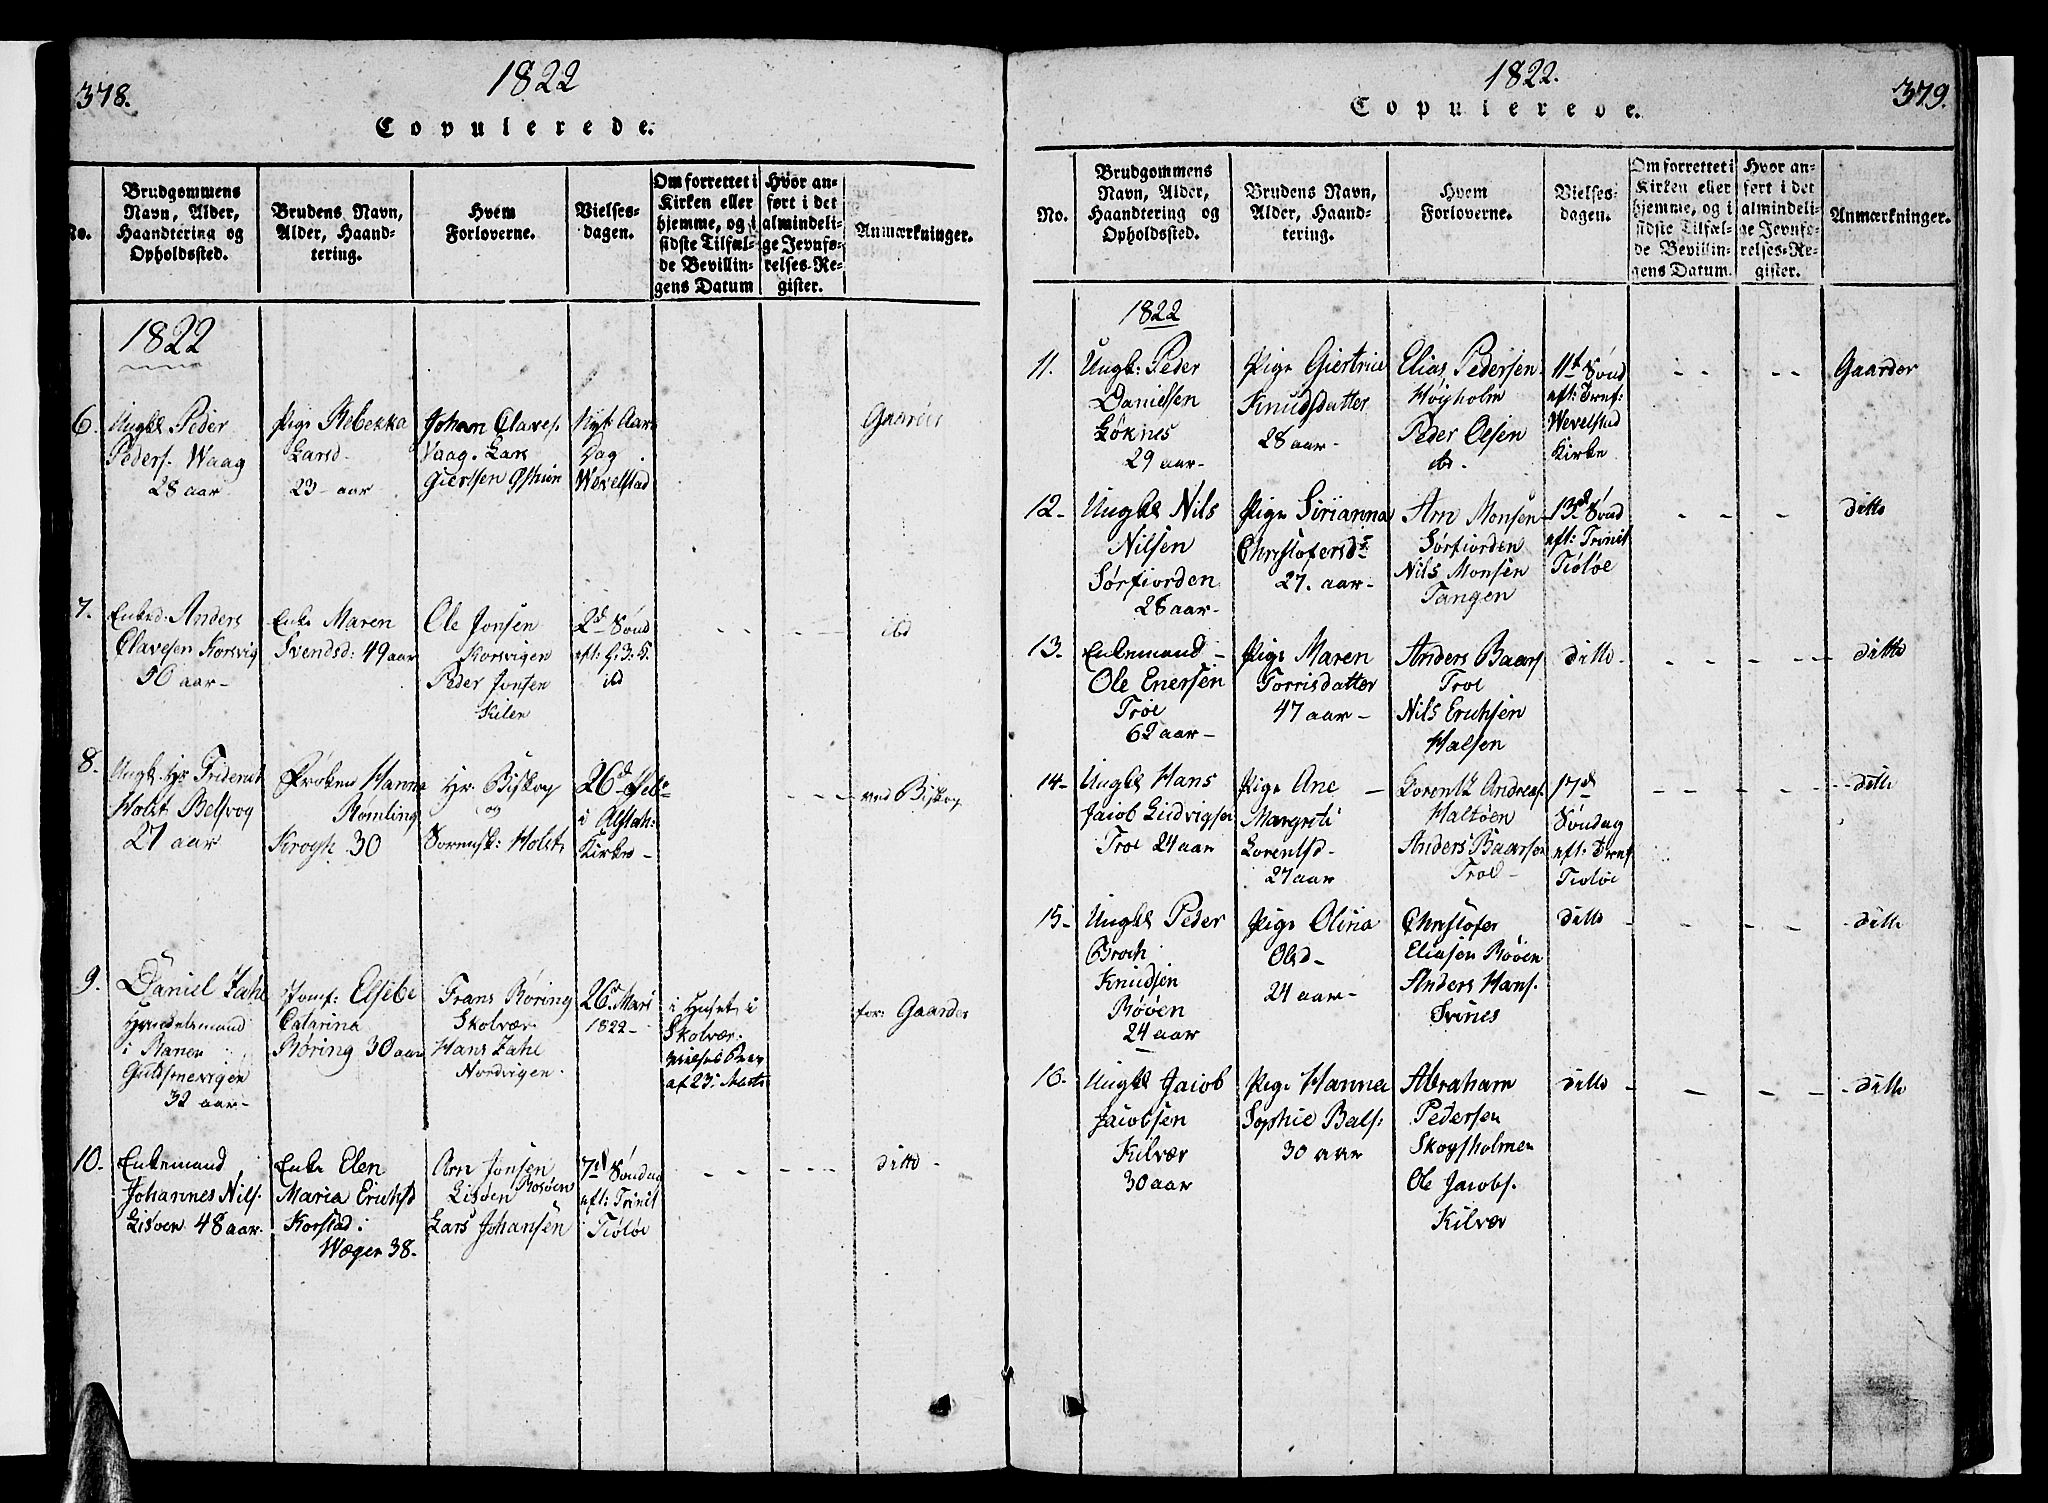 378.
1822
Copulerede.
No.
Brudgommens
Navn, Alder,
Haandtering og
Opholdssted.
Brudens Navn,
Alder, Haand-
tering.
Hvem
Forloverne.
Vielses-
dagen.
Om forrettet i
Kirken eller
hjemme, og i
sidste Tilfæl-
de Bevillin-
gens Datum
Hvor an-
ført i det
almindeli-
ge Jevnfø-
relses-Re-
gister.
Anmærkninger.
1822
6.
Ungkl Peder
Peders. Waag
28 aar
Pige Rebekka
Larsd-
23- aar
Johan Olaves.
Vaag. Lars
Giertsen
Nyt Aars
Dag
Wevelstad
Gaarder
7.
Enkd. Anders
Olavesen Korsvig
50 aar-
Enke Maren
Svendsd: 49 aar
Ole Jonsen
Korsvigen
Peder Jonsen
Kilen
2d Sønd
eft: H: 3: K.
ibd
- - - - -
ibd
8.
Ungk. Hr Friderich
Holst Belsvog
27 aar
Frøken Hanna
Rømling
Krogh 30
Hr: Biskop
og
Sorensk: Holst
26d Feb:
i Alstah:
Kirke-
- - -
ved Biskop
9.
Daniel Zahl
Handelsmand
i Ranen
32 aar-
Jomf: Elsebe
Catarina
Røring 30 aar
Frans Røring
Skolvær
Hans Zahl
Nordvigen.
26d Mars
1822-
i Huset i
Skolvær.
af 23: Marts
for: Gaarder
10.
Enkemand
Johannes Nils.
Lisøen 48 aar.
Enke Elen
Maria Erichsd
Korstad i
Wæger 38.
Arn Jonsen
Lisøen Rosøen
Lars Johansen
7d Søndag
eft: Trinit
i Tiøløe
- - - - -
ditto -
1822.
379.
Copulerede.
No.
Brudgommens
Navn, Alder,
Haandtering og
Opholdssted.
Brudens Navn,
Alder, Haand-
tering.
Hvem
Forloverne.
Vielses-
dagen.
Om forrettet i
Kirken eller
hjemme, og i
sidste Tilfæl-
de Bevillin-
gens Datum.
Hvor an-
ført i det
almindeli-
ge Jevnfø-
relses-Re-
gister.
Anmærkninger.
1822
11.
Ungk: Peder
Danielsen
Løknes
29 aar-
Pige Giertrue
Knudsdatter
28 aar-
Elias Pedersen
Høigholm
Peder Olsen
ibd.
11t Sønd
eft: Trnf:
Wevelstad
Kirke
- - - -
Gaarder
12-
Ungkl Nils
Nilsen
Sørfiorden
28 aar-
Pige Sirianna
Christofersdr
27. aar-
Arn Monsen
Sørfiorden
Nils Monsen
Tangen
13d Sønd
eft: Trinit
Tiøløe
- - -
ditto
13.
Enkemand-
Ole Enersen
Troe
62 aar-
Pige Maren
Torrisdatter
47 aar-
Anders Baars
Troe
Nils Erichsen
Halsen
ditto.
- - - - -
ditto
14-
Ungkl Hans
Jacob Lidvigsen
Troe 24 aar
Pige Ane -
Margreti
Lorentsd-
27 aar
Lorentz Andreas.
Haltøen
Anders Baarsen
Troe-
17d
Søndag
eft: Trnf
Tiøløe
- - - - -
ditto
15-
Ungkl Peder
Broch
Knudsen
Røøen
24 aar
Pige Olina
Olsd-
24 aar-
Christofer
Eliasen Røøen
Anders Hans.
Svines
ditto -
- - - -
ditto
16-
Ungkl Jacob
Jacobsen
Kilvær
30 aar
Pige Hanna
Sophie Bals:
30 aar
Abraham
Pedersen
Skogsholmen
Ole Jacobs.
Kilvær
ditto -
- - - -
ditto